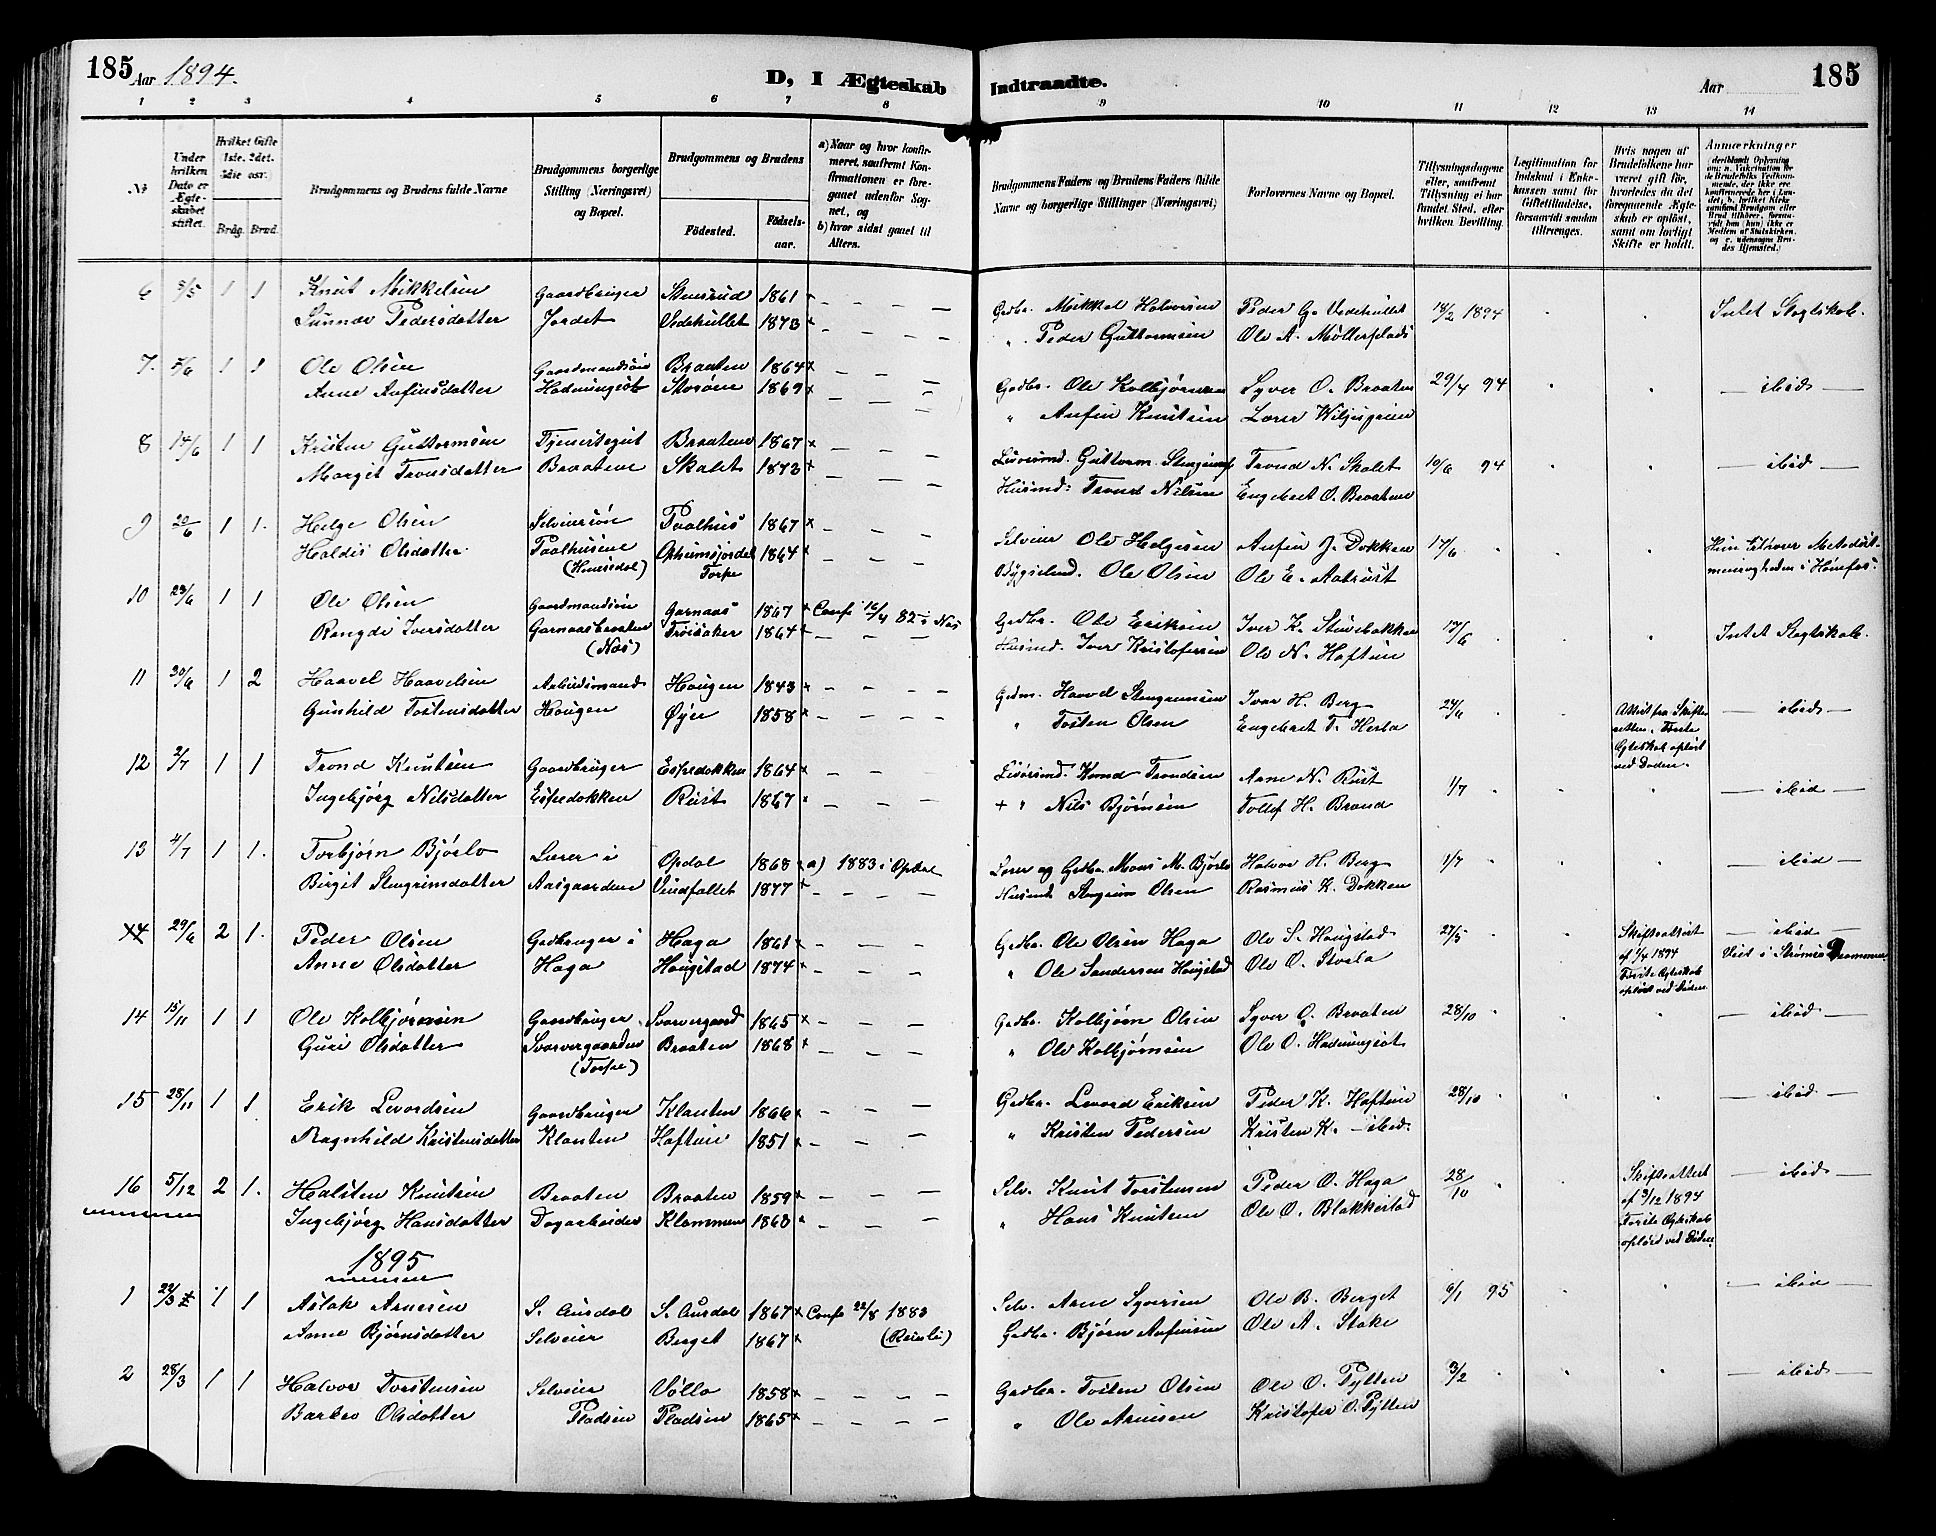 185 Aar 1894. D, I Ægteskab Indtraadte. Aar 185
1 2 3 4 5 6 7 8 9 10 11 12 13 14
№
Under hvilken Dato er Ægteskabet stiftet.
Hvilket Gifte 1ste, 2det, 3die osv.
Brdg. Brud.
Brudgommens og Brudens fulde Navne
Brudgommens borgerlige Stilling (Næringsvei) og Bopæl.
Brudgommens og Brudens
Fødested. Fødselsaar.
a) Naar og hvor konfirmeret, saafremt Konfirmationen er foregaaet udenfor Sognet, og
b) hvor sidst gaaet til Alters.
Brudgommens Faders og Brudens Faders fulde Navne og borgerlige Stillinger (Næringsvei)
Forlovernes Navne og Bopæl.
Tillysningsdagene eller, saafremt Tillysning ei har fundet Sted, efter hvilken Bevilling.
Legitimation for Indskud i Enkekassen samt for Giftetilladelse, forsaavidt saadan tiltrænges.
Hvis nogen af Brudefolkene har været gift før, hvorledes da det foregaaende Ægteskab er opløst, samt om lovligt Skifte er holdt.
Anmærkninger
6 8/5 1 1 Knut Mikkelsen Gaardbruger Stensrud 1861 × — Gedbr. Mikkel Halvorsen Peder G. Vedehullet 18/2 1894 Intet Slegtskab.
Gunnor Pedersdatter Jordet Vedehullet 1873 × — " Peder Guttormsen Ole A. Møllerplads
7. 5/6 1 1 Ole Olsen Gaardmandssøn Braaten 1864 × — Gedbr. Ole Kolbjørnsen Syver O. Braaten 29/4 94 — ibid —
Anne Anfinsdatter Hadningsøt Storøne 1869 × — " Anfin Knutsen Lærer Wiljugrein
8 14/6 1 1 Kristen Guttormsen Tjenertegut Braatene 1867 × — Guttorm Trond N. Skalet 10/6 94 — ibid —
Margit Tronsdatter Braatene Skalet 1873 × — Husmd: Trond Nilsen Engebret O. Braatene
9 20/6 1 1. Helge Olsen Selveiersøn Paalhus 1867 × — Selveier Ole Helgesen Anfin J. Dokken 17/6
Haldis Olsdatter Paalhusene (Hemsedal) Ophumsjordet Torpe 1864 × — Bygselmd. Ole Olsen Ole E. Aatrust
10 29/6 1 1 Ole Olsen Gaardmandssøn Garnaas 1867 × Conf 16/4 82 i Næs Gedbr. Ole Eriksen Iver K. Stenebakken 17/6 Intet Slegtskab.
Rangdi Iversdatter Garnaasbraaten (Næs) Trøisaker 1864 × — Husmd. Iver Kristofersen Ole N. Haftun
11 30/6 1 2 Haavel Haavelsen Arbeidsmand Haugen 1843 × — Gedm. Haavel Stengrimsen Ivar H. Berg 24/6 Attest fra Skifteretten. Første Egteskab opløst ved Døden. — ibid —
Gunhild Tostensdatter Haugen Øyer 1858 × — " Tosten Olsen Engebret T. Herla
12 2/7 1 1 Trond Knutsen Gaardbruger Espedokken 1864 × — Knud Trondsen Arne N. Rust 1/7 — ibid —
Ingebjørg Nilsdatter Espedokken Rust 1867 × — + " Nils Bjørnsen Tollef H. Brand
13 4/7 1 1. Torbjørn Bjørlo Lærer i Opdal 1868 × a) 1883 i Opdal Lærer og Gedbr. Mons M. Bjørlo Halvor H. Berg 1/7 — ibid —
Birgit Stengrimsdatter Aasgaardene Vindfallet 1877 × — Husmd. Stengrim Olsen Rasmus K. Dokken
14 29/6 2 1. Peder Olsen Gedbruger i Haga 1861 × — Gedbr. Ole Olsen Haga Ole S. Haugstad 27/5 Skifteattest af 1/4 1894 Første Egteskab opløst ved Døden — ibid —
Anne Olsdatter Haga Haugstad 1874 × — " Ole Sandersen Haugstad Ole O. Storla Viet i Strømsø Drammen
14 15/11 1 1 Ole Kolbjørnsen Gaardbruger Svarvergaard 1865 × — Gedbr. Kolbjørn Olsen Syver O. Braaten 28/10 — ibid —
Guri Olsdatter Svarvergaarden (Torpe) Braaten 1868 × — " Ole Kolbjørnsen Ole O. Hadningsøt
15 28/11 1 1 Erik Levordsen Gaardbruger Klanten 1866 × — Gedbr. Levord Eriksen Peder K. Haftun 28/10 — ibid —
Ragnhild Kristensdatter Klanten Haftun 1851 × — " Kristen Pedersen Kristen K. — ibid.
16 5/12 2 1. Halsten Knutsen Braaten Braaten 1859 × — Selv. Knut Torstensen Peder O. Haga 28/10 Skifteattest af 3/12 1894 Første Egteskab opløst ved Døden. — ibid —
Ingebjørg Hansdatter Dagarbeider Klemmen 1863 × — " Hans Knutsen Ole O. Blakkestad
1895
1 22/3 1 1 Aslak Arnesen S. Aurdal S. Aurdal 1867 × Conf 22/8 1883 Selv. Arne Syversen Ole B. Berget 6/1 95 — ibid —
Anne Bjørnsdatter Selveier Berget 1867 × (Reinli) Gedbr. Bjørn Anfinsen Ole A. Stake
2 28/3 1 1 Halvor Torstensen Selveier Vøllo 1858 × — Gedbr. Tosten Olsen Ole O. Pytten 3/2 — ibid —
Barbro Olsdatter Pladsen Pladsen 1865 × — " Ole Arnesen Kristofer O. Pytten